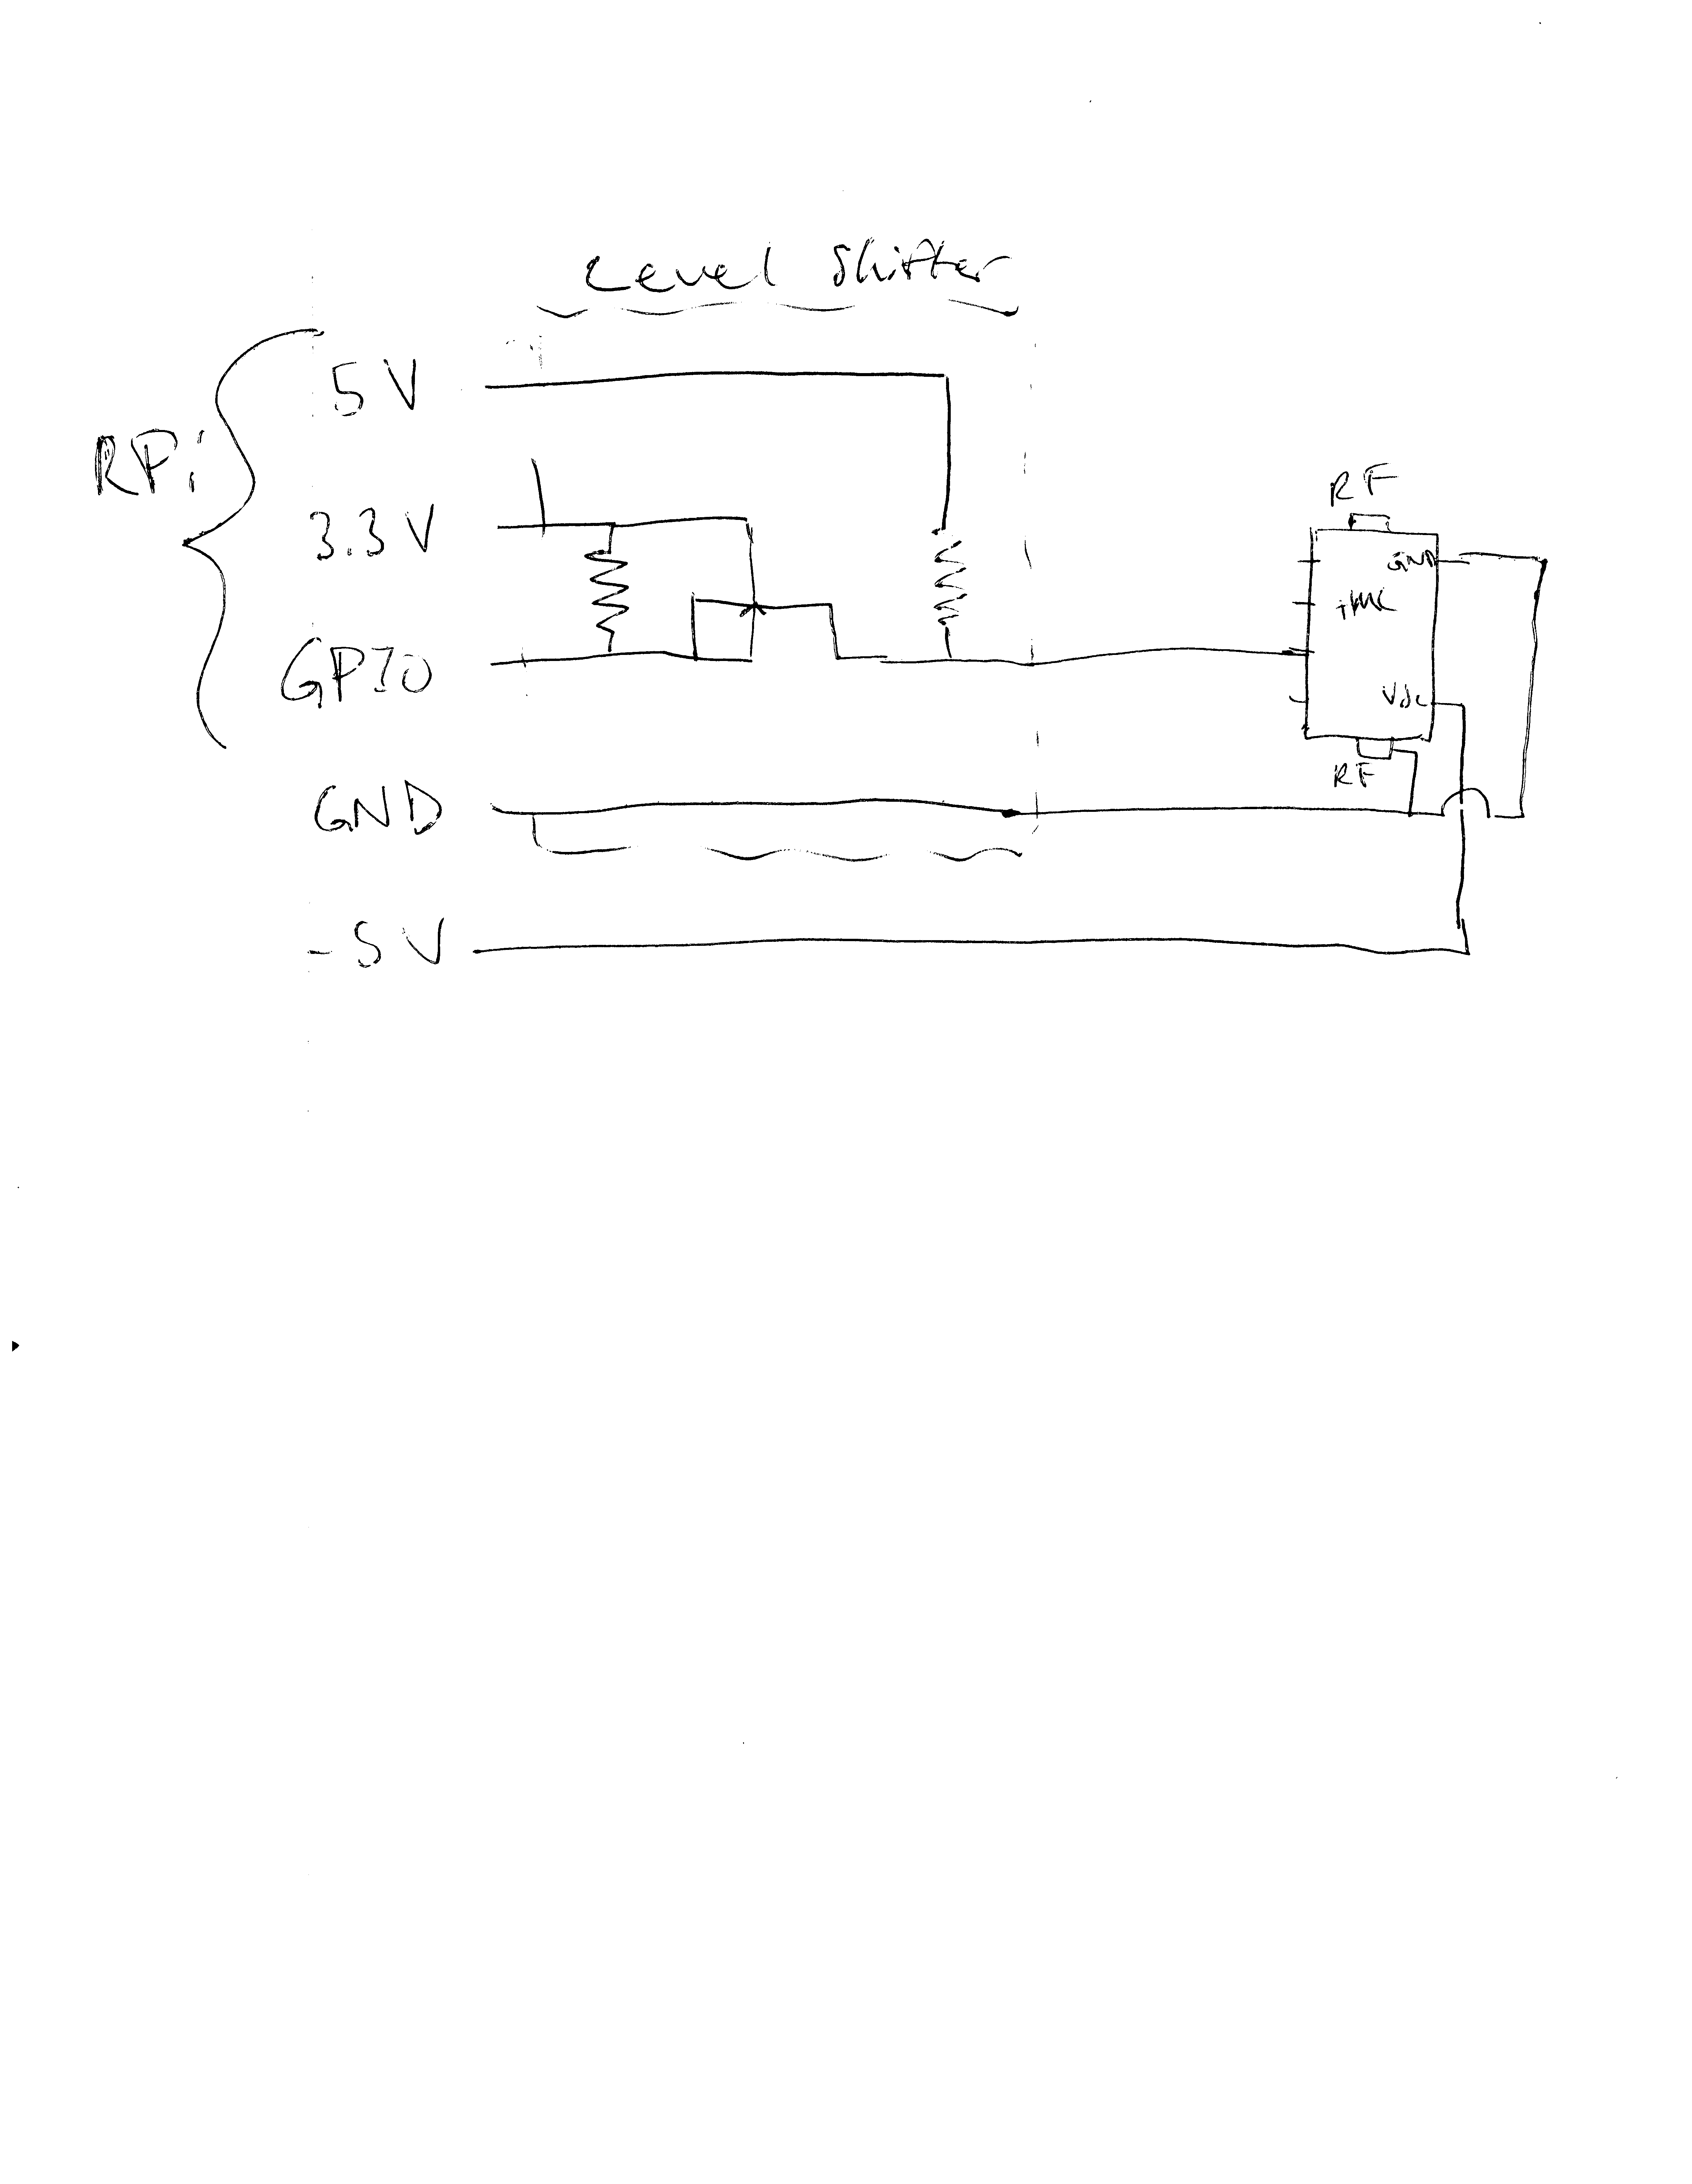 Level Shifter
5V
RPi
3.3V
GPIO
GND
-5V
RF
GND
Vdc
RF